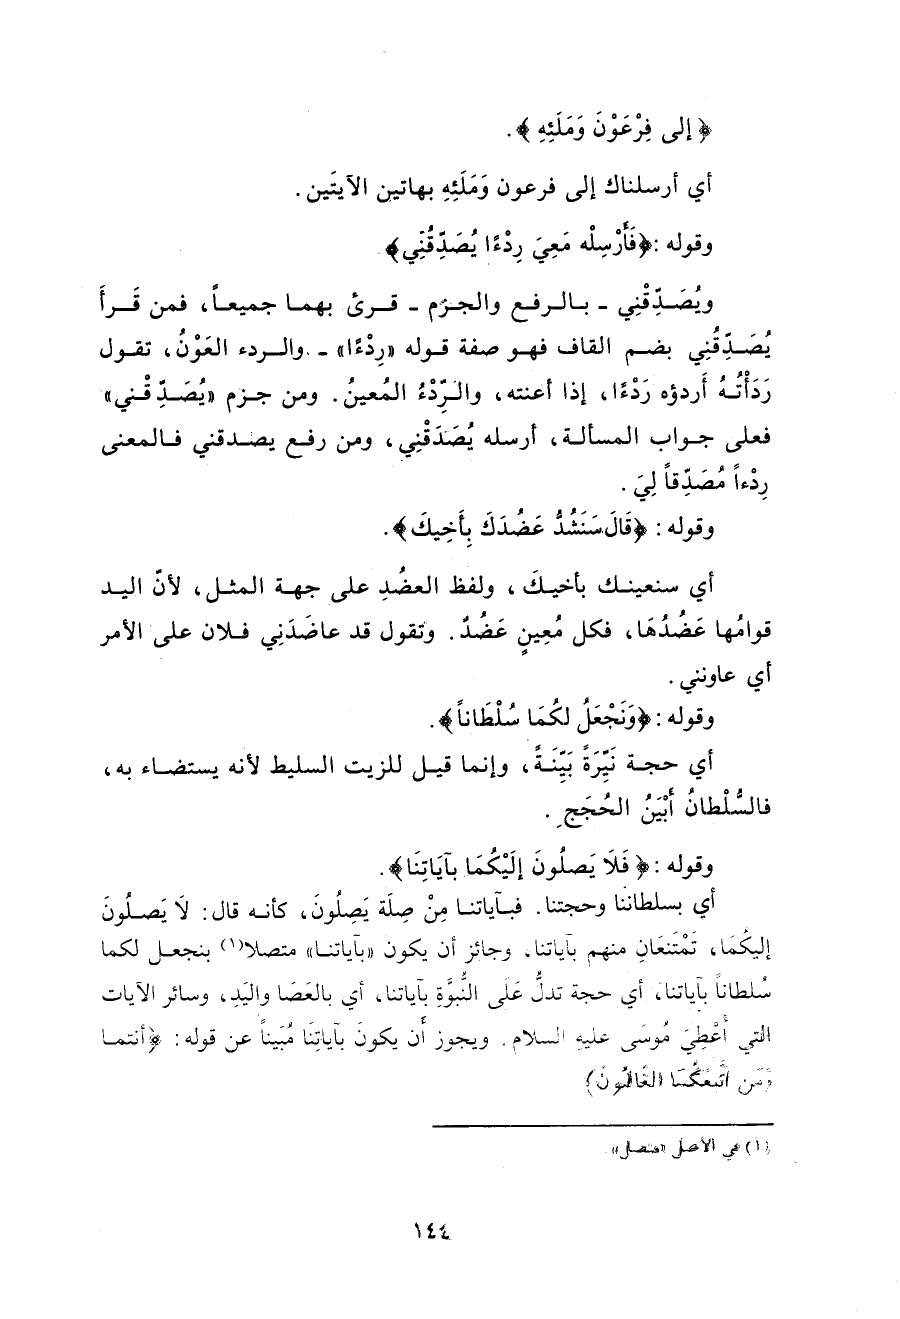 ﴿إلى فِرْعَوْنَ وَمَلَئِهِ﴾.
أي أرسلناك إلى فرعون وَمَلَئِهِ بهاتين الآيتَين.
وقوله: ﴿فَأَرْسِلْه مَعِيَ رِدْءًا يُصَدِّقُنِي﴾
ويُصَدِّقْنِي - بالرفع والجزم - قرئ بهما جميعاً، فمن قَرأَ
يُصَدِّقُنِي بضم القاف فهو صفة قوله «رِدْءًا» - والردء العَوْنُ، تقول
رَدَأْتُهُ أردؤه رَدْءًا، إذا أعنته، والرِّدْءُ المُعينُ. ومن جزم «يُصَدِّقْني»
فعلى جواب المسألة، أرسله يُصَدِّقْنِي، ومن رفع يصدقني فالمعنى
رِدْءاً مُصَدِّقاً لِيَ.
وقوله: ﴿قَالَ سَنَشُدُّ عَضُدَكَ بِأَخِيكَ﴾.
أي سنعينك بأخيكَ، ولفظ العضُدِ على جهة المثل، لأنّ اليد
قوامُها عَضُدُهَا، فكل مُعينٍ عَضُدٌ. وتقول قد عاضَدَنِي فلان على الأمر
أي عاونني.
وقوله: ﴿وَنَجْعَلُ لَكُمَا سُلْطَاناً﴾.
أي حجة نَيِّرَةً بَيِّنَةً، وإنما قيل للزيت السليط لأنه يستضاء به،
فالسُّلْطانُ أَبْيَنُ الحُجَجِ.
وقوله: ﴿فَلَا يَصلُونَ إلَيْكُمَا بآيَاتِنَا﴾.
أي بسلطاننا وحجتنا. فبآياتنا مِنْ صِلَة يَصِلُونَ، كأنه قال: لَا يَصلُونَ
إلَيكُمَا، تَمْتَنعَانِ منهم بآياتنا. وجائز أن يكون «بآياتنا» متصلا(١) بنجعل لكما
سُلطاناً بآياتنا، أي حجة تدلُّ عَلى النُّبوَّةِ بآياتنا، أي بالعَصَا واليَدِ، وسائر الآيات
التي أُعْطِيَ مُوسَى عليه السلام. ويجوز أن يكونَ بآيَاتِنَا مُبَيناً عن قوله: ﴿أنتما
وَمَن اتّبعَكُمَا الغَالِبُونَ)
(١) في الأصل «متصل».
١٤٤